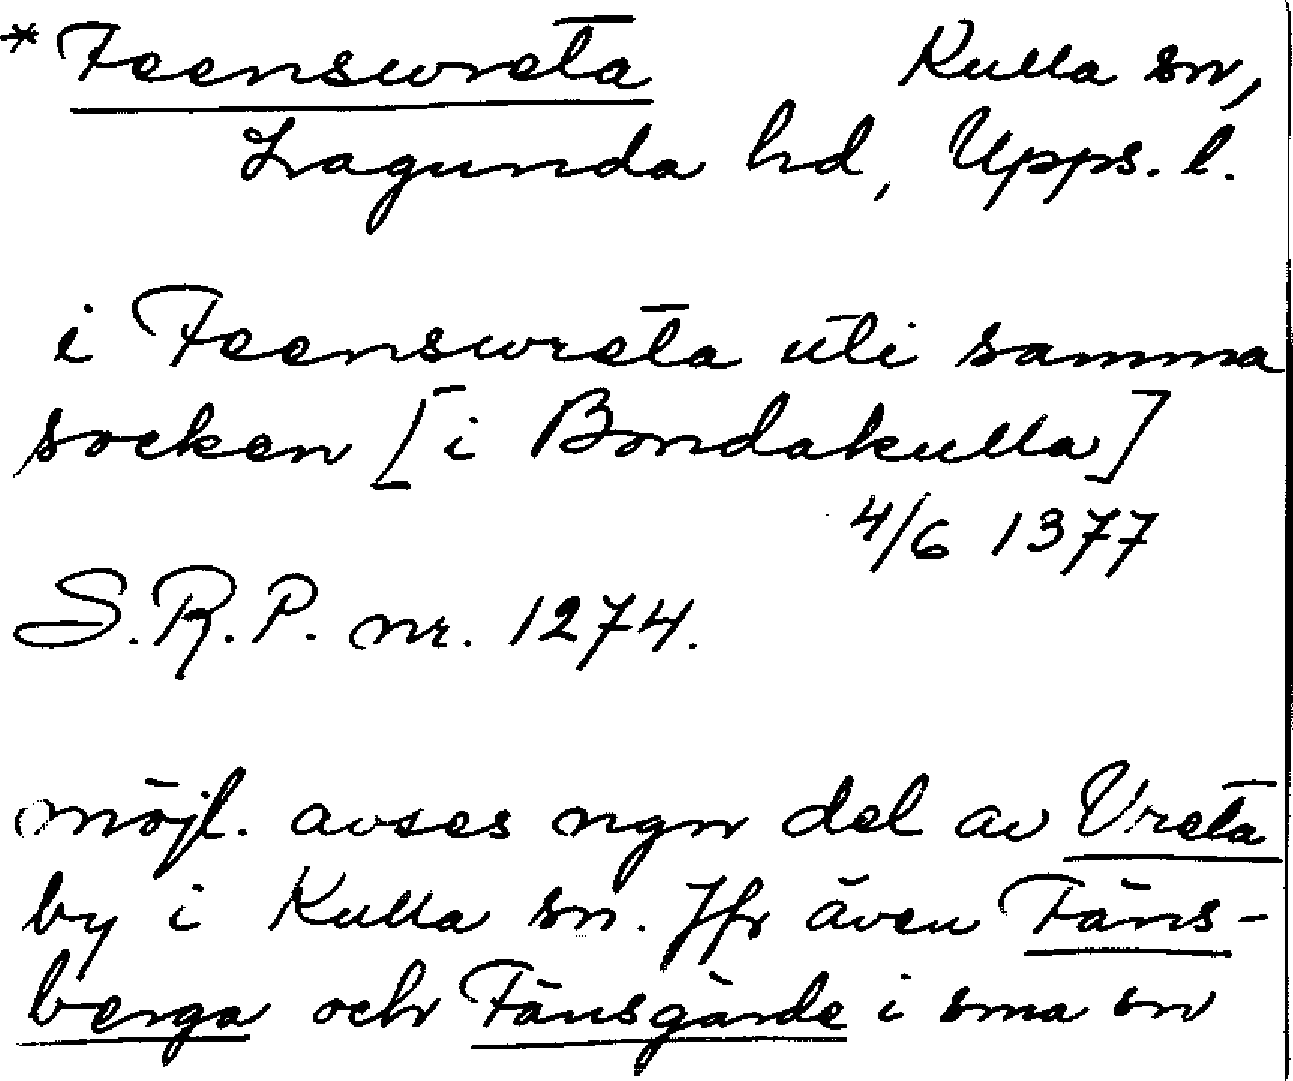 * Feenswreta Kulla sn,
Lagunda hd, Upps. l.
i Feenswreta uti samma
socken [i Bondakulla]
4/6 1377
S.R.P. nr. 1274.
möjl. avses ngn del av Vreta
by i Kulla sn. Jfr även Fäns-
berga och Fänsgärde i sma sn